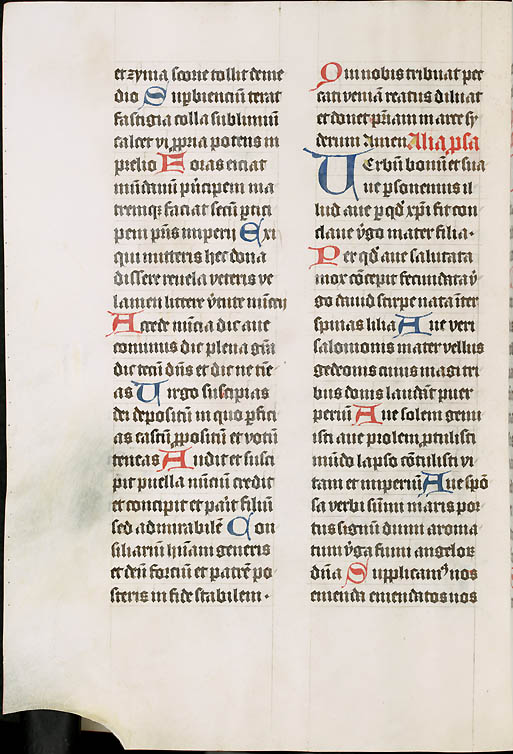 et zyma scorie tollit de me
dio Supbienciū terat
fastigia colla sublimiū
calcet vi ꝓpria potens in
prelio Foras eiciat
mūdanū pͥncipem ma
tremqꝫ faciat secū ptici
pem pris imperij Exi
qui mitteris hec dona
dissere reuela veteris ve
lamen littere vͥtute nūcij
Accede nūcia dic aue
cominus dic plena grā
dic tecū dn̄s et dic ne tie
as Virgo suscipias
dei depositū in quo ꝑfici
as castū ꝓpositū et votū
teneas Audit et susci
pit puella nūciū credit
et concipit et parit filiū
sed admirabilē Con
siliariū hūani generis
et deū fortiū et patrē po
steris in fide stabilem.
Qui nobis tribuat pec
cati veniā reatus diluat
et donet pr̄iam in arce sy
derum Amen Alia ꝓsa
Verbū bonū et sua
ue ꝑsonemus il
lud aue ꝑ qd̓ xp̄i fit con
claue vͥgo mater filia.
Per qd̓ aue salutata
mox cōcepit fecundata vͥ
go dauid stirpe nata int̓er
spinas lilia Aue veri
salomonis mater vellus
gedeonis cuius magi tri
bus donis laudāt puer
perium Aue solem genu
isti aue prolem ꝓtulisti
mūdo lapso cōtulisti vi
tam et imperiū Aue spō
sa verbi sūmi maris por
tus signū dumi aroma
tum vͥga fumi angeloꝝ
dn̄a Supplicamꝰ nos
emenda emendatos nos